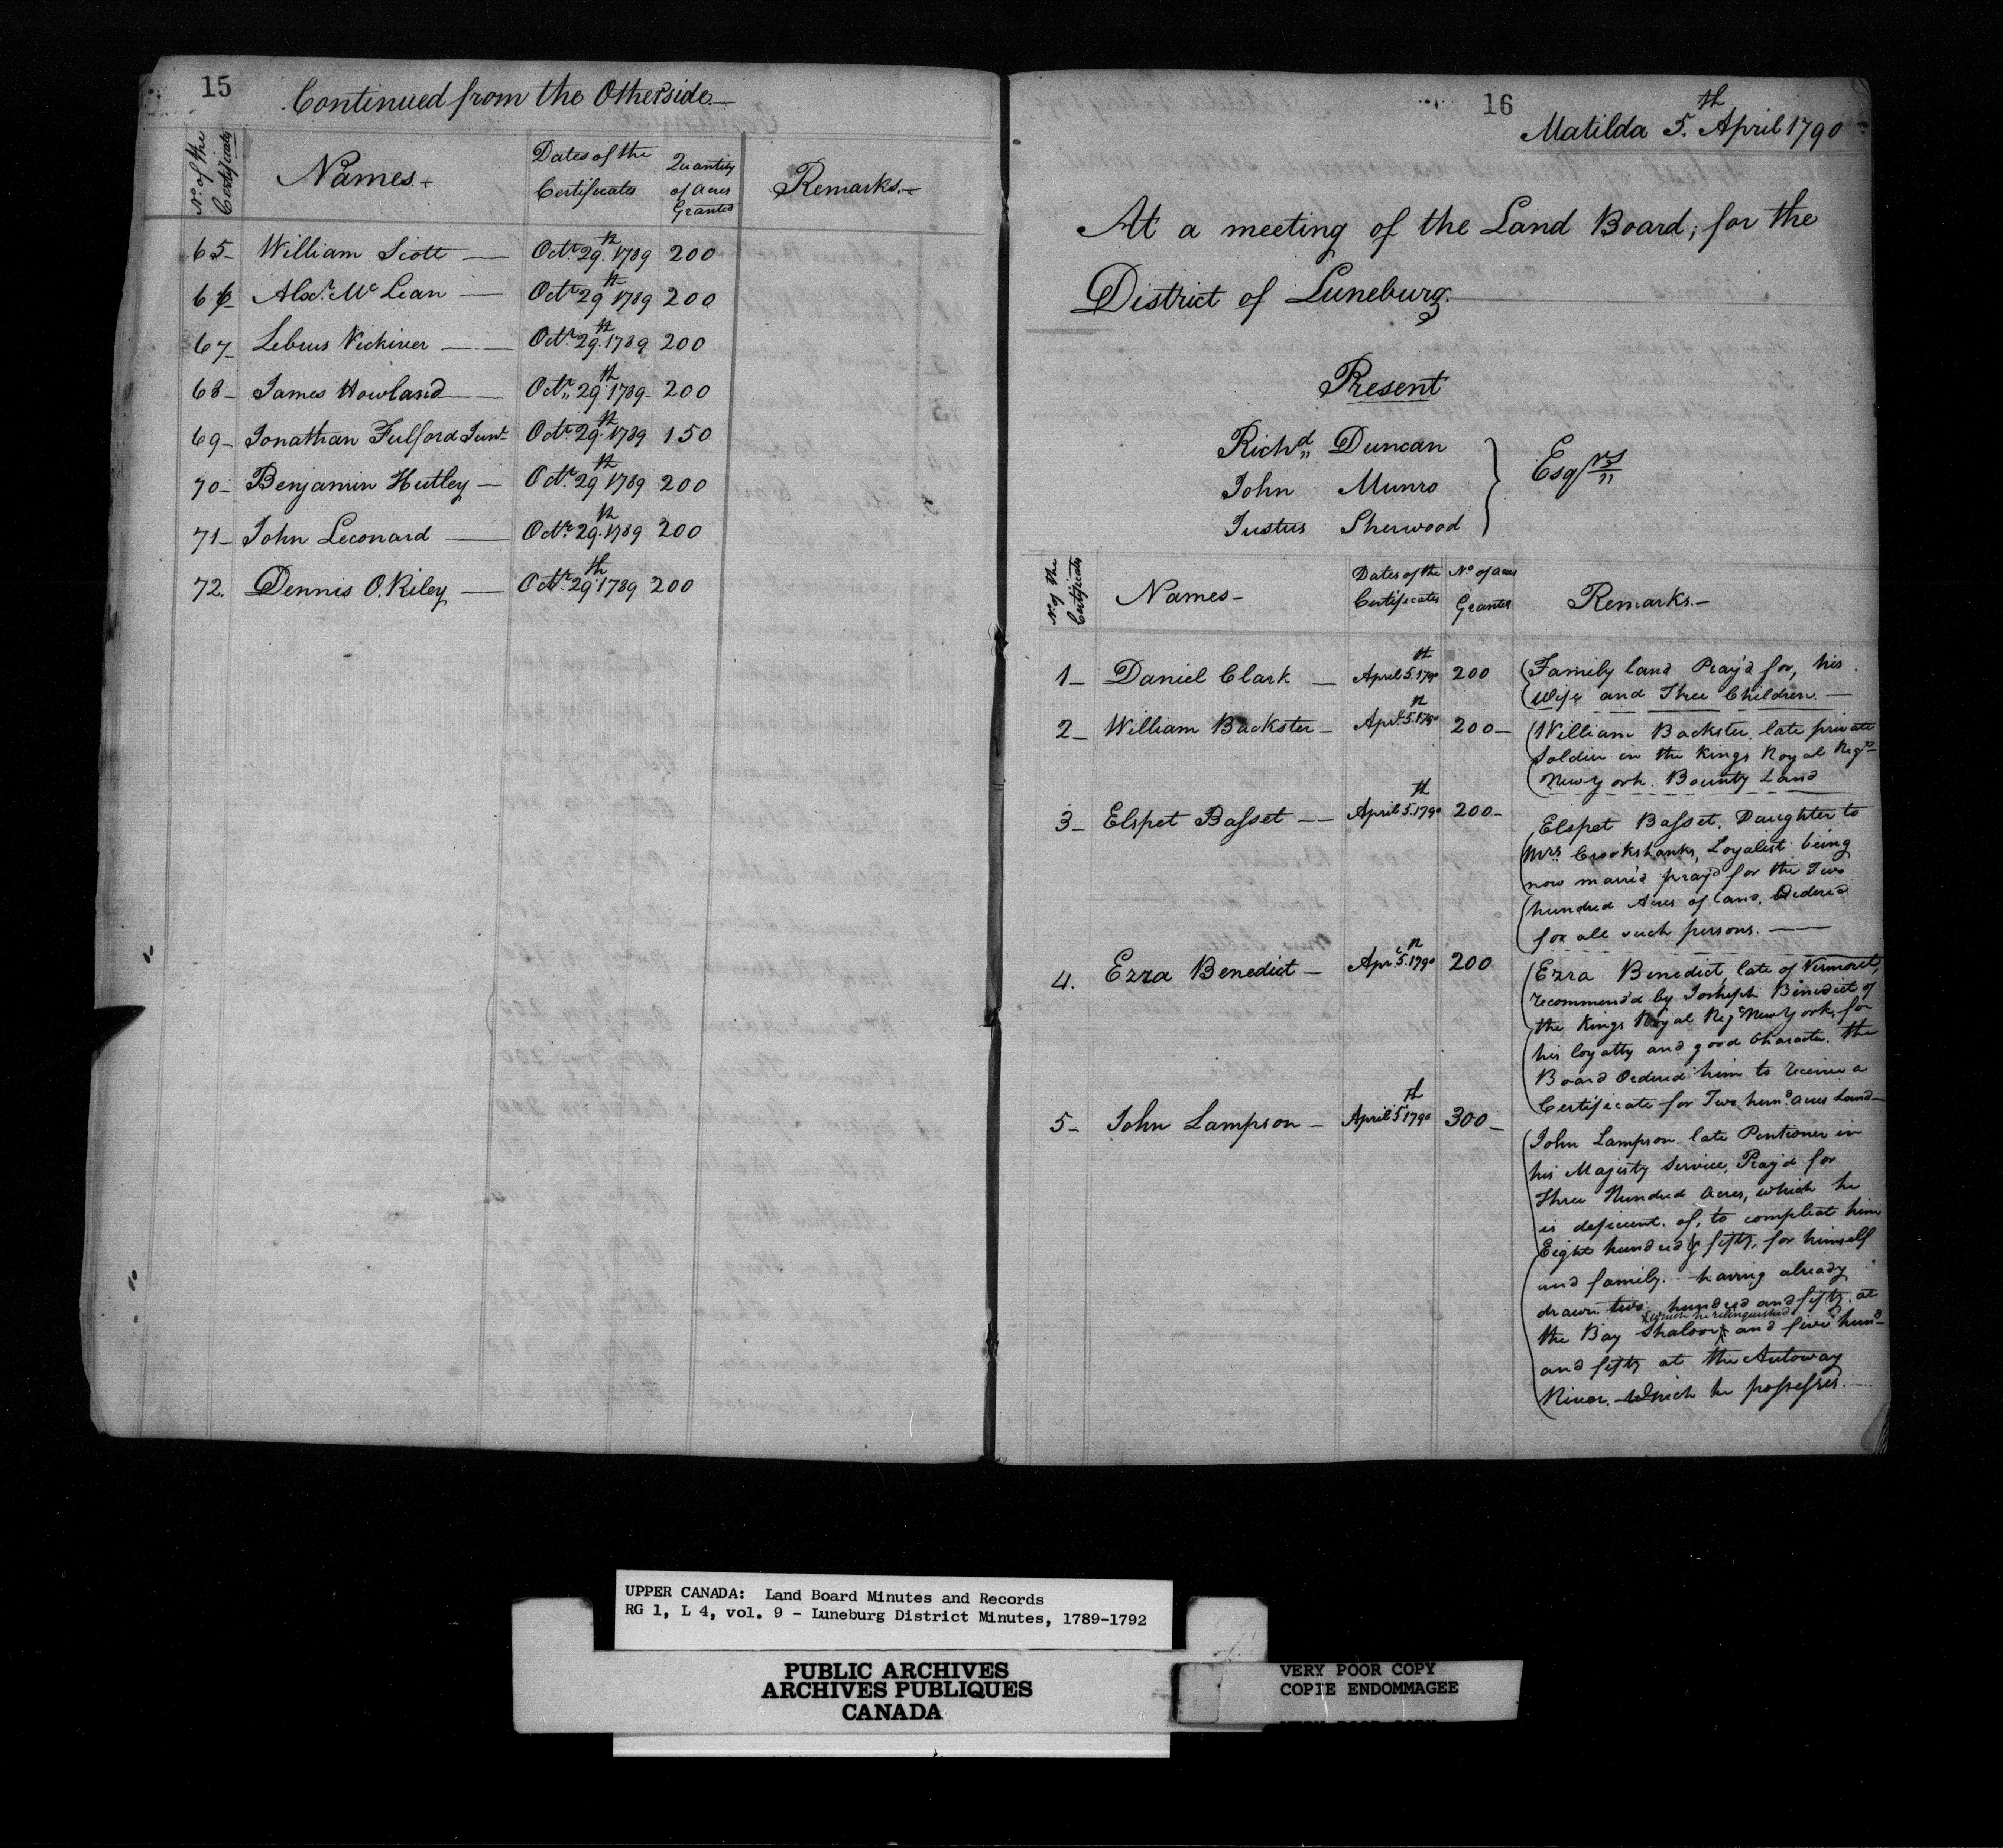 15
Continued from the Otherside
No. of the Certificate Names. Dates of the Certificates Quantity of Acres Granted Remarks.
65 William Scott Octr. 29th 1789 200
66 Alexr. McLean Octr. 29th 1789 200
67 Octr. 29th 1789 200
68 James Howland Octr. 29th 1789 200
69 Jonathan Fulford Junr. Octr. 29th 1789 150
70 Benjamin Hutley Octr. 29th 1789 200
71 John Leconard Octr. 29th 1789 200
72. Dennis O.Riley Octr. 29th 1789 200
16
Matilda 5th. April 1790
At a meeting of the Land Board, for the
District of Luneburg.
Present
Richd. Duncan
John Munro
Justus Sherwood
Esqrs
No. of the Certificate Names Dates of the Certificates No. of acres Granted Remarks.
1 Daniel Clark April 5th. 1790 200
Family land Pray'd for, his
Wife and Three Children.
2 William Backster Aprl. 5th. 1790 200
William Backster. late private
Soldier in the Kings Royal Regt.
New York. Bounty Land
3 Elspet Basset April 5th. 1790 200
Elspet Basset. Daughter to
Mrs. Crookshanks, Loyalist being
now marri'd pray'd for the Two
hundred Acres of land. Order'd
for all such persons.
4. Ezra Benedict Aprl. 5th. 1790 200
Ezra Benedict, late of Vermont,
recommend'd by Josheph Benedict of
the Kings Royal Regt. New York, for
his loyalty and good Character. the
Board Ordered him to receive a
Certificate for Two hund. acres Land
5 John Lampson April 5th 1790 300
John Lampson. late Pentioner in
his Majesty Service, Pray'd for
Three Hundred Acres, which he
is deficient. of, to compleat him
Eight hundred & fifty, for himself
and family. having already
drawn two hundred and fifty. at
which he relinquished
the Bay Shaloor and five hund.
and fifty at the Autoway
River. which he possesses.
UPPER CANADA: Land Board Minutes and Records
RG 1, L 4, vol. 9 - Luneburg District Minutes, 1789-1792
PUBLIC ARCHIVES
ARCHIVES PUBLIQUES
CANADA
VERY POOR COPY
COPIE ENDOMMAGEE